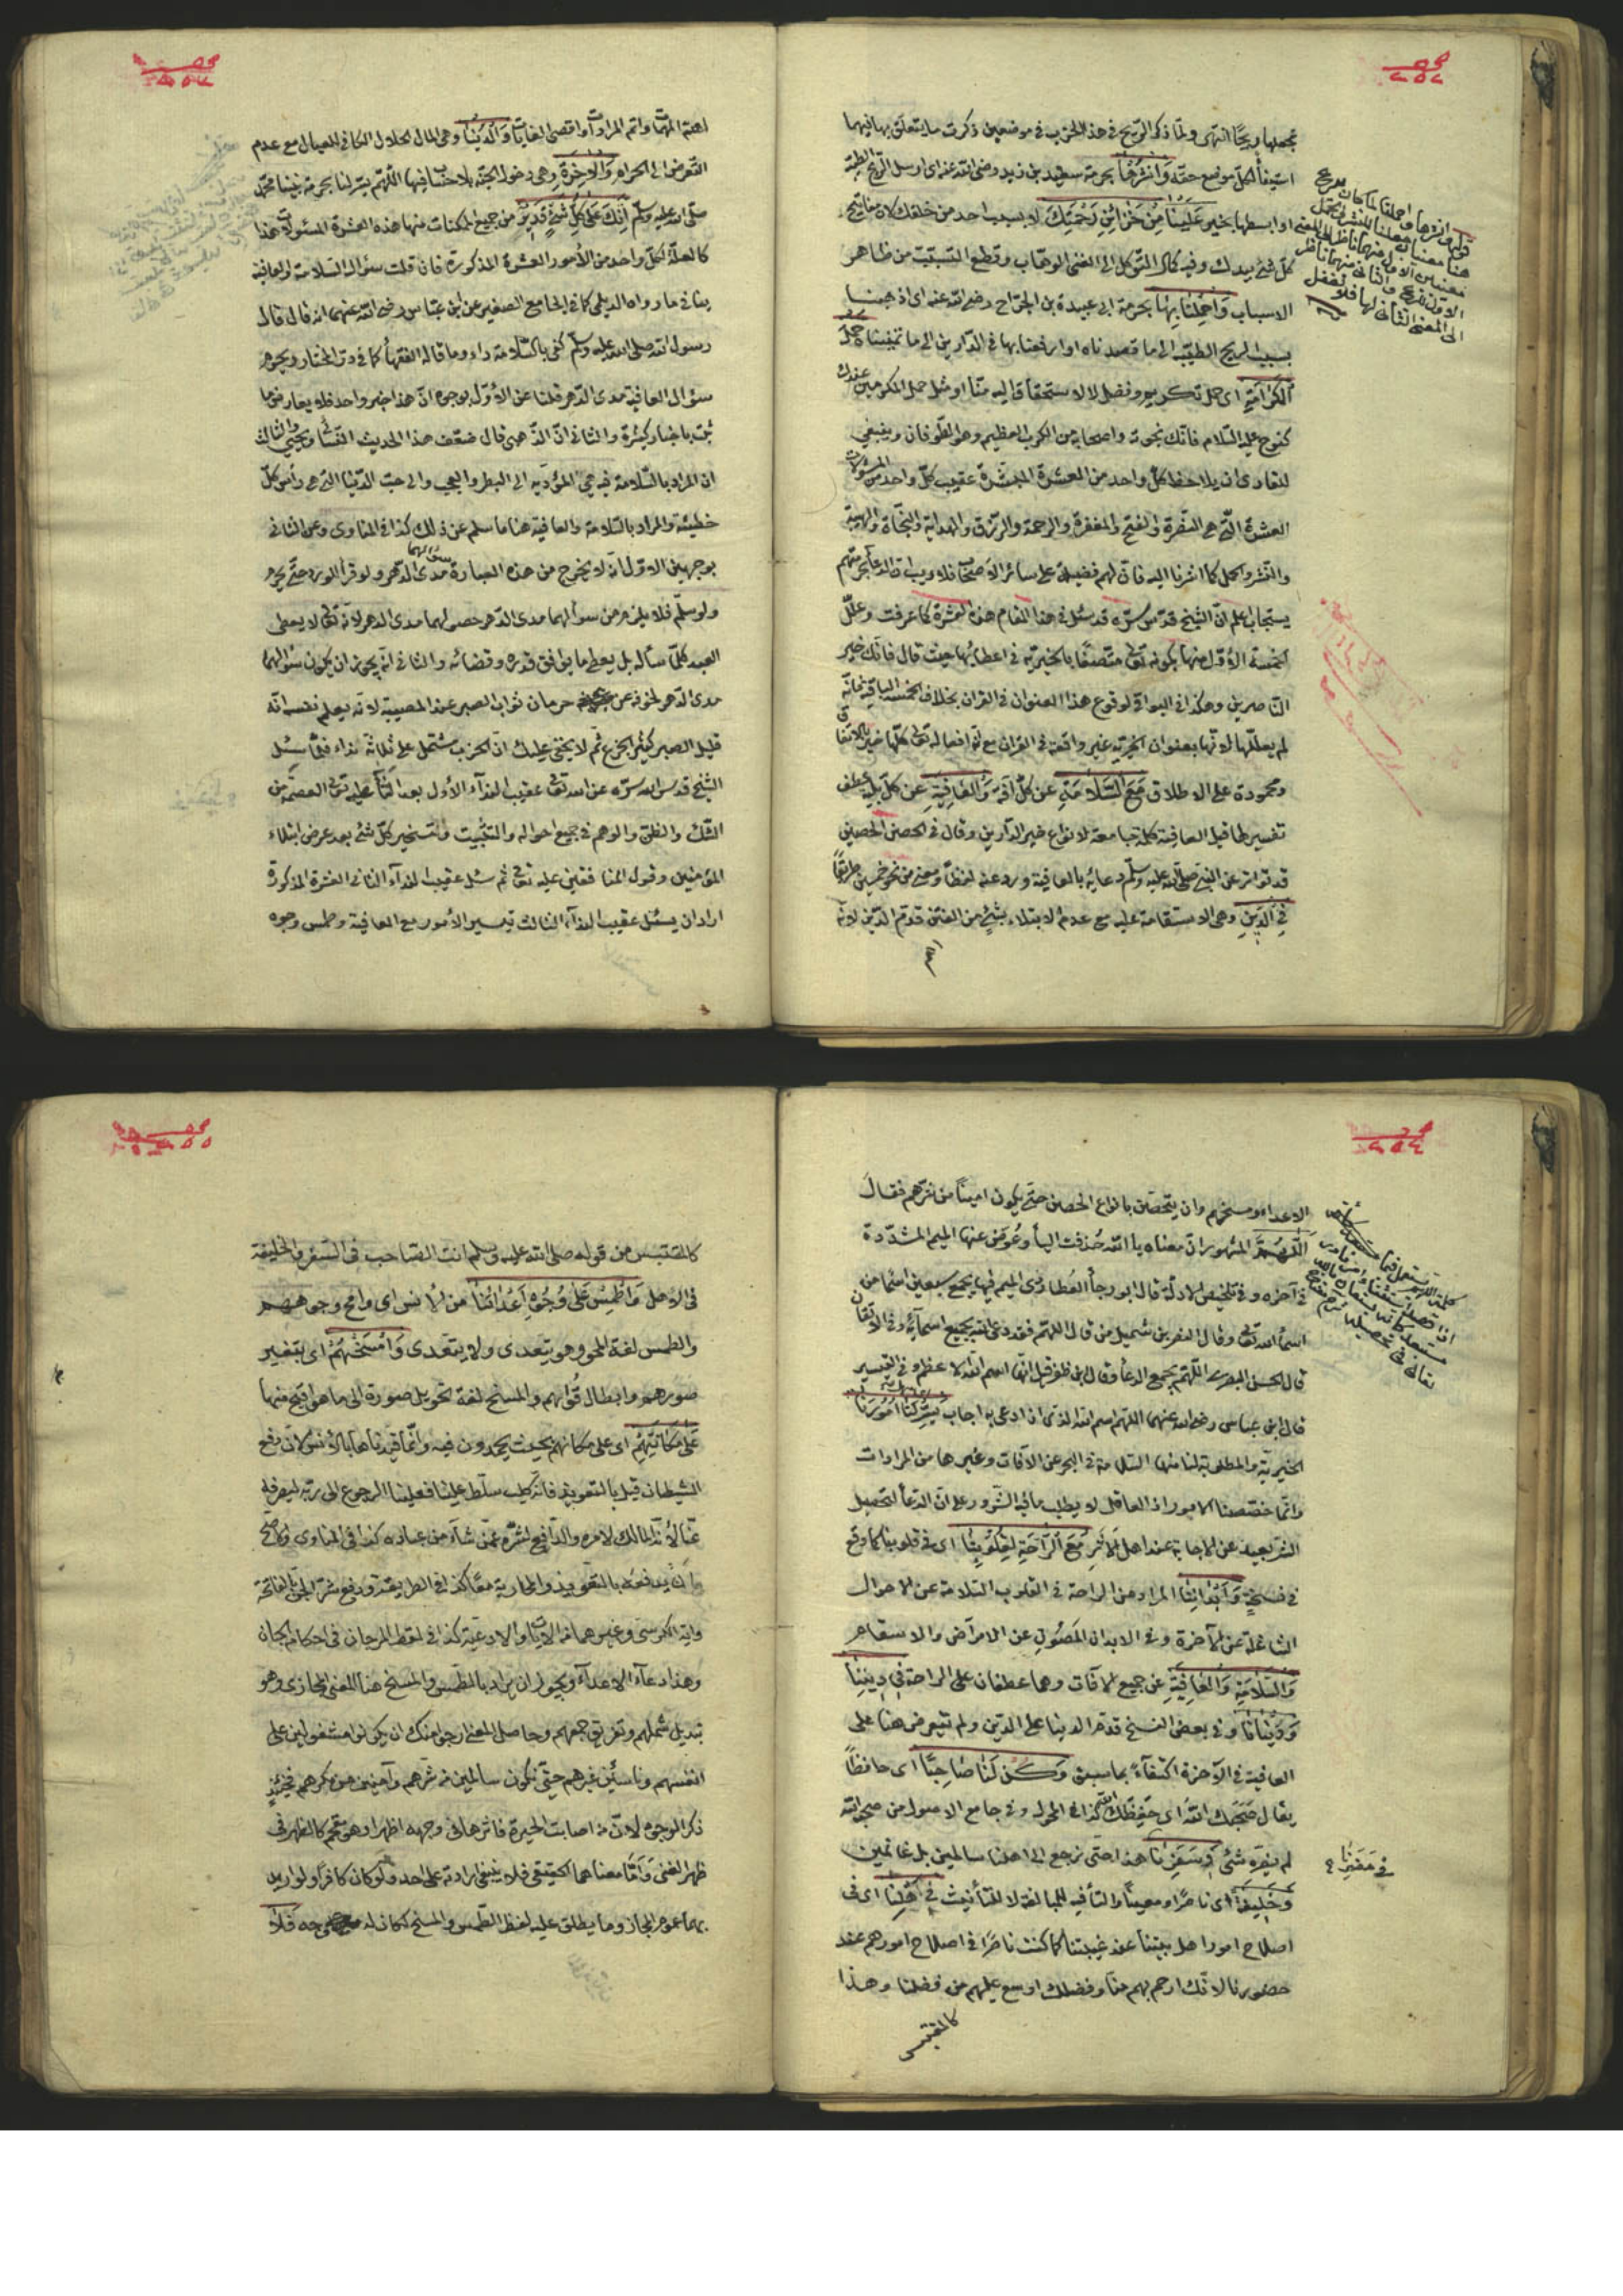 يجعلها ريحا انتهى ولما ذكر الريح في هذا الحزب في موضعين ذكرت ما يتعلق بها فيهما
استيفاء لكل موضع حقه وَانْشُرْهَا بحرمة سعيد بن زيد رضى الله عنه اى ارسل الريح الطيبة
او ابسطها بخير عَلَيْنَا مِنْ خَزَائِنِ رَحْمَتِكَ لا بسبب احد من خلقك لان مفاتيح
كل شئ بيدك وفيه كمال التوكل الى الغنى الوهاب وقطع التسبب من ظاهر
الاسباب وَاحْمِلْنَا بِهَا بحرمة ابى عبيدة بن الجراح رضى الله عنه اى اذهبنا
بسبب الريح الطيبة الى ما قصدناه او ارفعنا بها في الدارين الى ما تمنيناه حَمْلَ
الْكَرَامَةِ اى حمل تكريم وفضل لا لاستحقاقا اليه منا او مثل حمل المكرمين عندك
كنوح عليه السلام فانك نجوته واصحابه من الكرب العظيم وهو الطوفان وينبغي
للقارى ان يلاحظ كل واحد من العشرة المبشرة عقيب كل واحد من المسئولات
العشرة التى هى النصرة والفتح والمغفرة والرحمة والرزق والهداية والنجاة والهبة
والنشر والحمل كما اشرنا اليه فان لهم فضيلة على سائر الاصحاب فلا ريب ان الدعاء بحرمتهم
يستجاب اعلم ان الشيخ قدس سره قد سئل في هذا المقام هذه العشرة كما عرفت وعلل
الخمسة الاول منها بكونه تعالى متصفا بالخيرية في اعطائها حيث قال فانك خير
الناصرين وهكذا في البواقى لوقوع هذا العنوان في القران بخلاف الخمسة الباقية فانه
لم يعللها لانها بعنوان الخيرية غير واقعة في القران مع ان افعاله تعالى كلها خير بالاتفاق
ومحمودة على الاطلاق مَعَ السَّلَامَةِ عن كل آفة وَالْعَافِيَةِ عن كل بلية عطف
تفسير لما قبل العافية كلمة جامعة لانواع خير الدارين وقال في الحصن الحصين
قد تواتر عن النبى صلى الله عليه وسلم دعائه بالعافية وورد عنه لفظا ومعنى من نحو خمسين طريقا
فِي الدِّينِ وهى الاستقامة عليه مع عدم الابتلاء بشئ من الفتن قدم الدين لانه
اهم
اهم المهمات واتم المرادات واقصى الغايات وَالدُّنْيَا وهى المال الحلال الكافى للعيال مع عدم
التعرض الى الحرام وَالْآخِرَةِ وهى دخول الجنة بلا حساب فيها اللهم يسر لنا بحرمة نبينا محمد
صلى الله عليه وسلم اِنَّكَ عَلَى كُلِّ شَيْءٍ قَدِيرٌ من جميع الممكنات منها هذه العشرة المسئولات هذا
كالعلة لكل واحد من الامور العشرة المذكورة فان قلت سؤال السلامة والعافية
ينافى ما رواه الديلمى كما في الجامع الصغير عن ابن عباس رضى الله عنهما انه قال قال
رسول الله صلى الله عليه وسلم كفى بالسلامة داء وما قاله الفقهاء كما في در المختار ويحرم
سؤال العافية مدى الدهر قلنا عن الاول بوجوه ان هذا خبر واحد فلا يعارض ما
ثبت باخبار كثيرة والثانى ان الذهبى قال ضعف هذا الحديث النسائى ويحيى والثالث
ان المراد بالسلامة فيه هى المؤدية الى البطر والعجب والى حب الدنيا التى هى رأس كل
خطيئة والمراد بالسلامة والعافية هنا ما سلم عن ذلك كذا في المناوى وعن الثانى
بوجهين الاول انه لا يخرج من هذه العبارة سؤالهما مدى الدهر ولو قرأ الورد حتى يحرم
ولو سلم فلا يلزم من سؤالهما مدى الدهر حصولهما مدى الدهر لانه تعالى لا يعطى
العبد كلما سأله بل يعطى ما يوافق قدره وقضائه والثانى انه يجوز ان يكون سؤالهما
مدى الدهر لخوفه عن حرمان ثواب الصبر عند المصيبة لانه يعلم نفسه انه
قليل الصبر كثير الجزع ثم لا يخفى عليك ان الحزب مشتمل على ثلاثة نداء فلما سئل
الشيخ قدس الله سره عن الله تعالى عقيب النداء الأول بعد الثناء عليه تعالى العصمة من
الشك والظن والوهم في جميع احواله والتثبيت وتسخير كل شئ بعد عرض ابتلاء
المؤمنين وقول المنافقين عليه تعالى ثم سئل عقيب النداء الثانى العشرة المذكورة
اراد ان يسئل عقيب النداء الثالث تيسير الأمور مع العافية وطمس وجوه
الاعداء ومسخهم وان يتحصن بانواع الحصن حتى يكون امينا من شرهم فقال
اَللّٰهُمَّ المشهور ان معناه يا الله حُذفت الياء وعُوض عنها الميم المشددة
في آخره وفى تلخيص الادلة قال ابو رجاء العُطاردى الميم فيها يجمع سبعين اسما من
اسماء الله تعالى وقال النضر بن شميل من قال اللهم فقد دعى الله بجميع اسمائه وفى الاتقان
قال الحسن البصرى اللهم يجمع الدعاء وقال ابن ظفر قيل انها اسم الله الاعظم وفى التيسير
قال ابن عباس رضى الله عنهما اللهم اسم الله الذى اذا دعى به اجاب يَسِّرْ لَنَا اُمُورَنَا
الخيرية والمطلوبة لنا منها السلامة في البحر عن الآفات وغيرها من المرادات
وانما خصصنا الامور اذ العاقل لا يطلب ما فيه الشرور على ان الدعاء لتحصيل
الشر بعيد عن الاجابة عند اهل الاثر مَعَ الرَّاحَةِ لِقُلُوبِنَا اى في قلوبنا كما وقع
في نسخة وَاَبْدَانِنَا المراد من الراحة في القلوب السلامة عن الاحوال
الشاغلة عن الآخرة وفى الابدان المصون عن الامراض والاسقام
وَالسَّلَامَةِ وَالْعَافِيَةِ عن جميع الآفات وهما عطفان على الراحة فِي دِينِنَا
وَدُنْيَانَا وفى بعض النسخ قدم الدنيا على الدين ولم تتعرض هنا على
العافية في الآخرة اكتفاء بما سبق وَكُنْ لَنَا صَاحِبًا اى حافظًا
يقال صَحَبَك الله اى حفظك الله كذا في المحول وفى جامع الاصول من صحبه الله
لم يضره شئ فِي سَفَرِنَا هذا حتى نرجع الى اهلنا سالمين بل غانمين
وَخَلِيفَةً اى ناصرا ومعينا والتاء فيه للمبالغة لا للتأنيث فِي اَهْلِنَا اى في
اصلاح امور اهل بيتنا عند غيبتنا كما كنت ناصرًا في اصلاح امورهم عند
حضورنا لانك ارحم بهم منا وفضلك اوسع عليهم من فضلنا وهذا
كالمقتبس
كالمقتبس من قوله صلى الله عليه وسلم انت الصاحب في السفر والخليفة
في الاهل وَاطْمِسْ عَلَى وُجُوهِ اَعْدَائِنَا من الانس اى وامح وجوههم
والطمس لغة المحو وهو يتعدى ولا يتعدى وَامْسَخْهُمْ اى بتغيير
صورهم وابطال قواهم والمسخ لغة تحويل صورة الى ما هو اقبح منها
عَلَى مَكَانَتِهِمْ اى على مكانهم بحيث يجمدون فيه وانما قيدناها بالانس لان دفع
الشيطان قيل بالتعويذ فانه كلب سلط علينا فعلينا الرجوع الى ربه ليصرفه
عنا لانه المالك لامره والدافع لشره عمن شاء من عباده كذا في المناوى والاصح
ان يدفعه بالتعويذ والمحاربة معا كذا في الطريقة ودفع شر الجن بالفاتحة
واية الكرسى وغيرهما من الايات والادعية كذا في لقط المرجان في احكام الجان
وهذا دعاء الاعداء ويجوز ان يراد بالطمس والمسخ هنا المعنى المجازى وهو
تبديل شملهم وتفريق جمعهم وحاصل المعنى ارجو منك ان يكونوا مشغولين على
انفسهم وناسئين غيرهم حتى نكون سالمين من شرهم وآمنين من مكرهم فحينئذ
ذكر الوجوه لان من اصابته الحيرة فاثرها في وجهه اظهر او هو مقحم كالظهر في
ظهر الغنى واما معناهما الحقيقى فلا ينبغى ارادته على احد ولو كان كافرا ولو اريد
بهما عموم المجاز وما يطلق عليه لفظ الطمس والمسخ لكان له وجه فَلَا